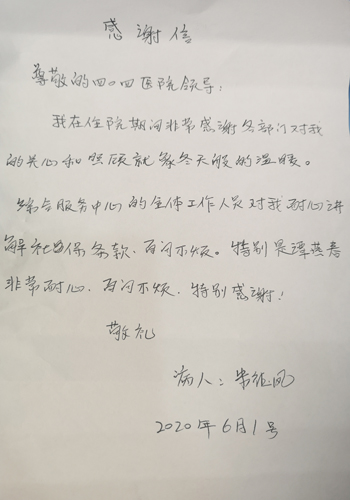 感谢信
尊敬的四〇四医院领导:
我在住院期间非常感谢各部门对我
的关心和照顾就象冬天般的温暖。
综合服务中心的全体工作人员对我耐心讲
解社保条款、百问不烦。特别是谭燕春
非常耐心、百问不烦、特别感谢!
敬礼
病人:
2020年6月1号